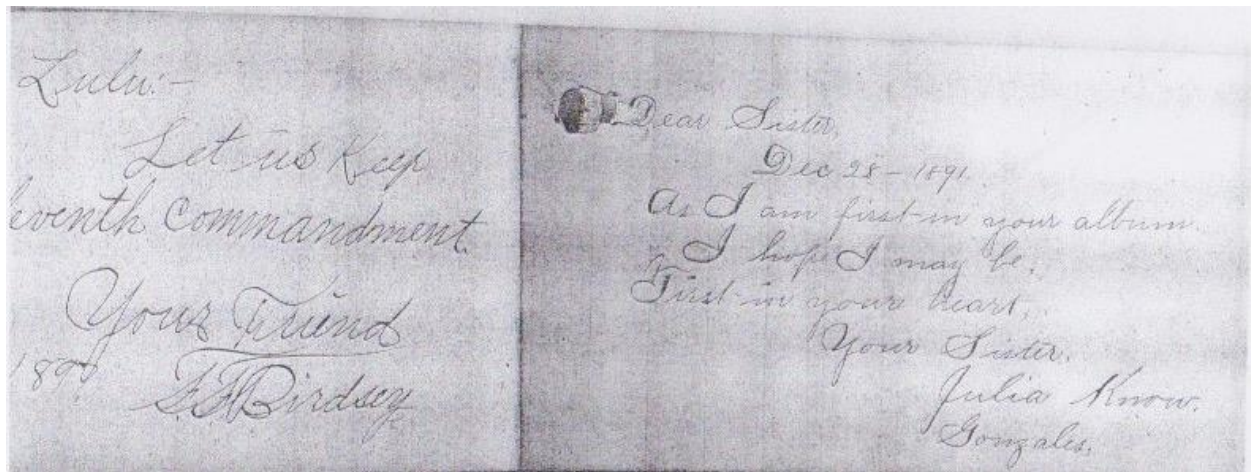 Lulu:-
Let us Keep
eventh Commandment.
Your Friend
189
F.F. Birdsey
Dear Sister,
Dec 28 - 1891.
As I am first in your album.
I hope I may be.
First in your heart.
Your Sister.
Julia Know.
Gonzales.